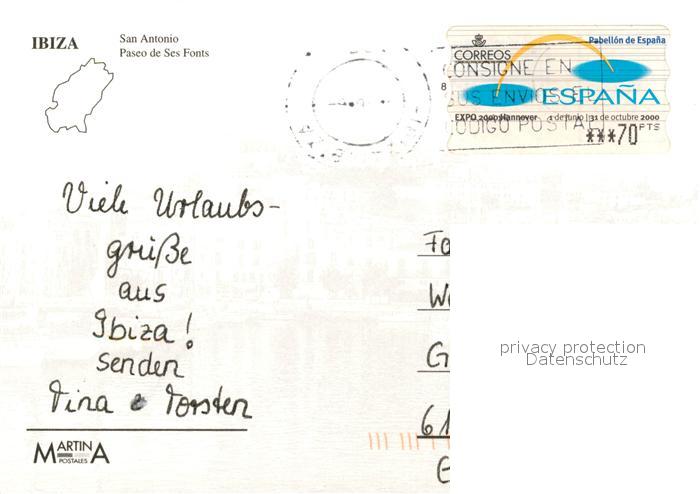 IBIZA
San Antonio
Paseo de Ses Fonts
CORREOS
Pabellón de España
CONSIGNE EN
SUS ENVIOS EL
CODIGO POSTAL
ESPAÑA
EXPO 2000 Hannover 1 de junio | 31 de octubre 2000
***70 PTS
8
Viele Urlaubs-
grüße
aus
Ibiza!
senden
Tina & Torsten
MARTINA
POSTALES
Fa
We
G
61
privacy protection
Datenschutz